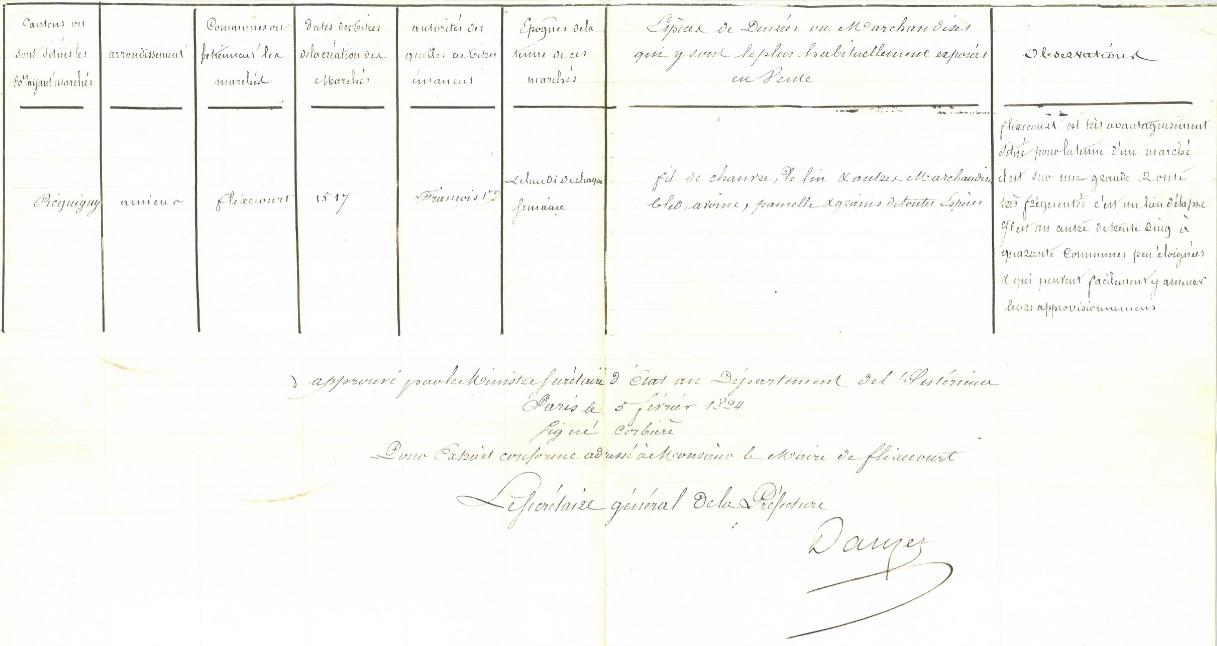 Cantons où
sont situés les
Com ayant marchés
arrondissement
Communes où
se tiennent les
marchés
dates des titres
de la création des
Marchés
autorités des
quelles ces titres
émanent
Epoques de la
tenue de ces
marchés
Espèces de Denrées ou Marchandises
qui y sont le plus habituellement exposées
en Vente
Observations
Picquigny
amiens
flixecourt
1517
François 1er
Le lundi de chaque
semaine
fil de chanvre, de lin & autres Marchandises
bled avoine, pamelle & grains de toutes Espèces
flixecourt est très avantageusement
situé pour la tenue d'un marché
il est sur une grande Route
très fréquentée c'est un lieu d'étape
il est au centre de trente cinq à
quarante Communes peu éloignées
& qui peuvent facilement y amener
leurs approvisionnemens
approuvé par le Ministre Secrétaire d'État au Département de l'Intérieur
Paris le 5 février 1824
Signé Corbière
Pour Extrait conforme adressé à Monsieur le Maire de flixecourt
Le Secrétaire général de la Préfecture